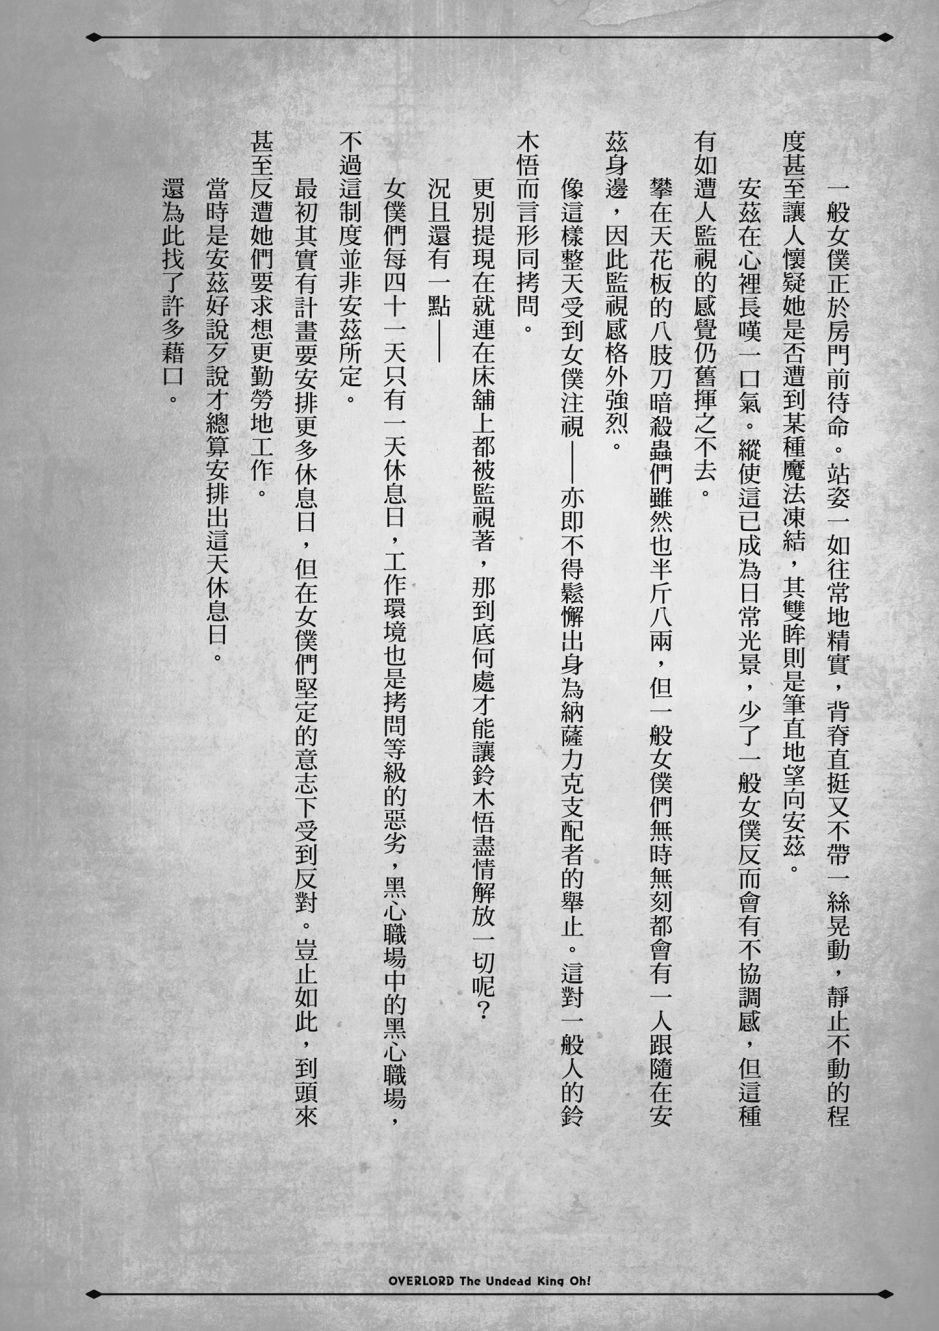 一般女僕正於房門前待命。站姿一如往常地精實，背脊直挺又不帶一絲晃動，靜止不動的程
度甚至讓人懷疑她是否遭到某種魔法凍結，其雙眸則是筆直地望向安茲。
安茲在心裡長嘆一口氣。縱使這已成為日常光景，少了一般女僕反而會有不協調感，但這種
有如遭人監視的感覺仍舊揮之不去。
攀在天花板的八肢刀暗殺蟲們雖然也半斤八兩，但一般女僕們無時無刻都會有一人跟隨在安
茲身邊，因此監視感格外強烈。
像這樣整天受到女僕注視——亦即不得鬆懈出身為納薩力克支配者的舉止。這對一般人的鈴
木悟而言形同拷問。
更別提現在就連在床舖上都被監視著，那到底何處才能讓鈴木悟盡情解放一切呢？
況且還有一點——
女僕們每四十一天只有一天休息日，工作環境也是拷問等級的惡劣，黑心職場中的黑心職場，
不過這制度並非安茲所定。
最初其實有計畫要安排更多休息日，但在女僕們堅定的意志下受到反對。豈止如此，到頭來
甚至反遭她們要求想更勤勞地工作。
當時是安茲好說歹說才總算安排出這天休息日。
還為此找了許多藉口。
OVERLORD The Undead King Oh!